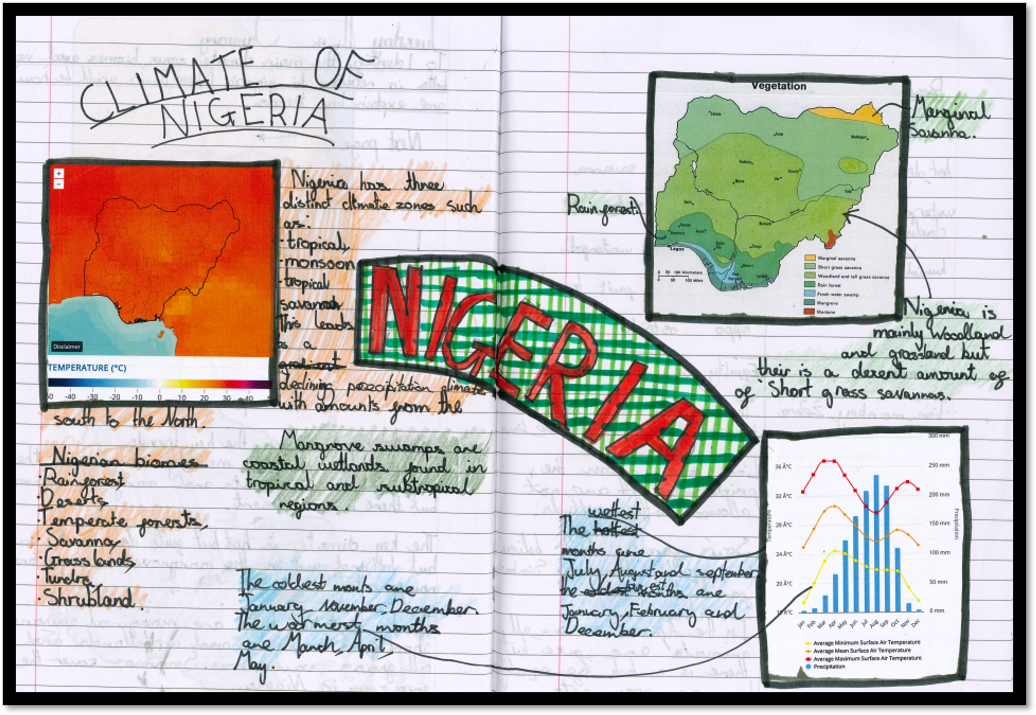 CLIMATE OF
NIGERIA
+
−
Disclaimer
TEMPERATURE (°C)
-40 -30 -20 -10 0 10 20 30 40
Nigeria has three
distinct climatic zones such
as:
·tropical
·monsoon
·tropical
savannah
This leads
declining precipitation climate
with amounts from the
south to the North.
Nigerian biomes
·Rainforest
·Deserts
·Temperate forests,
·Savanna,
·Grasslands
·Tundra,
·Shrubland.
Mangrove swamps are
coastal wetlands found in
tropical and subtropical
regions.
The coldest monts are
January, November, December.
The warmest months
are March, April,
May.
NIGERIA
Vegetation
Lagos
Marginal savanna
Short grass savanna
Woodland and tall grass savanna
Rain forest
Fresh water swamp
Mangrove
Montane
Marginal
Savanna.
Rainforest.
Nigeria is
mainly Woodland
and grassland but
their is a decent amount of
of Short grass savannas.
wettest
The hottest
months are
July, August and september
the coldest months are
January, February and
December.
300 mm
36 °C 250 mm
32 °C 200 mm
28 °C 150 mm
24 °C 100 mm
20 °C 50 mm
0 mm
Temperature
Precipitation
Jan Feb Mar Apr May Jun Jul Aug Sep Oct Nov Dec
Average Minimum Surface Air Temperature
Average Mean Surface Air Temperature
Average Maximum Surface Air Temperature
Precipitation